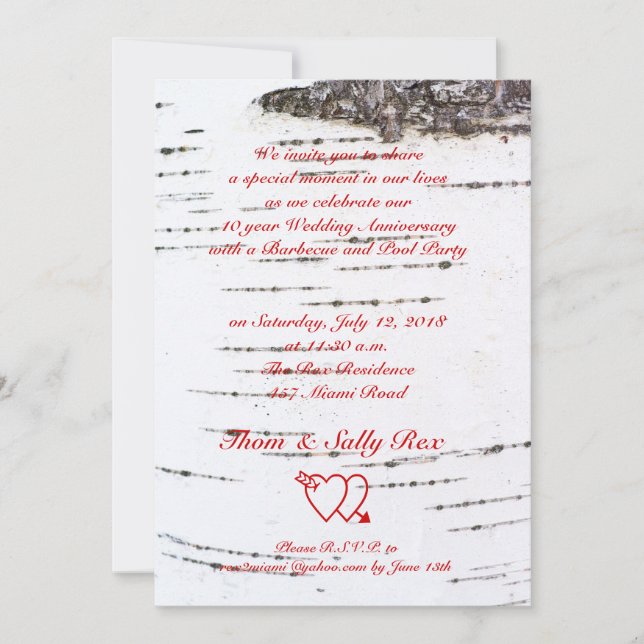 We invite you to share
a special moment in our lives
as we celebrate our
10 year Wedding Anniversary
with a Barbecue and Pool Party
on Saturday, July 12, 2018
at 11:30 a.m.
The Rex Residence
457 Miami Road
Thom & Sally Rex
Please R.S.V.P. to
rex2miami@yahoo.com by June 13th